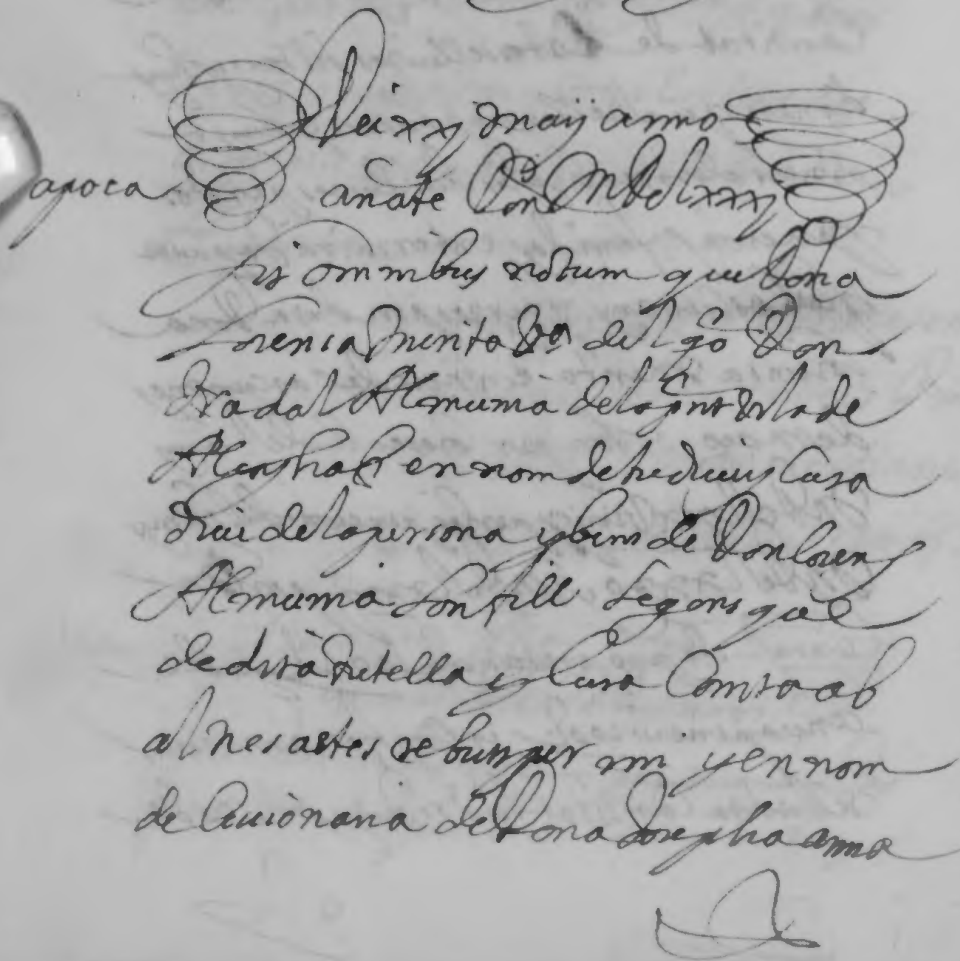 Die xxj maij anno
apoca
anate Don MDclxxxj
Sit omnibus notum que Dona
Lorensa Merita Va del qo Don
Nadal Almunia de la pnt vila de
en nom de tudriu y Cura
driu de la persona y bens de Don Lorens
Almunia son fill segons que
de dita tutella y Cura Consta ab
altres actes rebuts per mi y en nom
de Cuiònaria de Dona Josepha anna